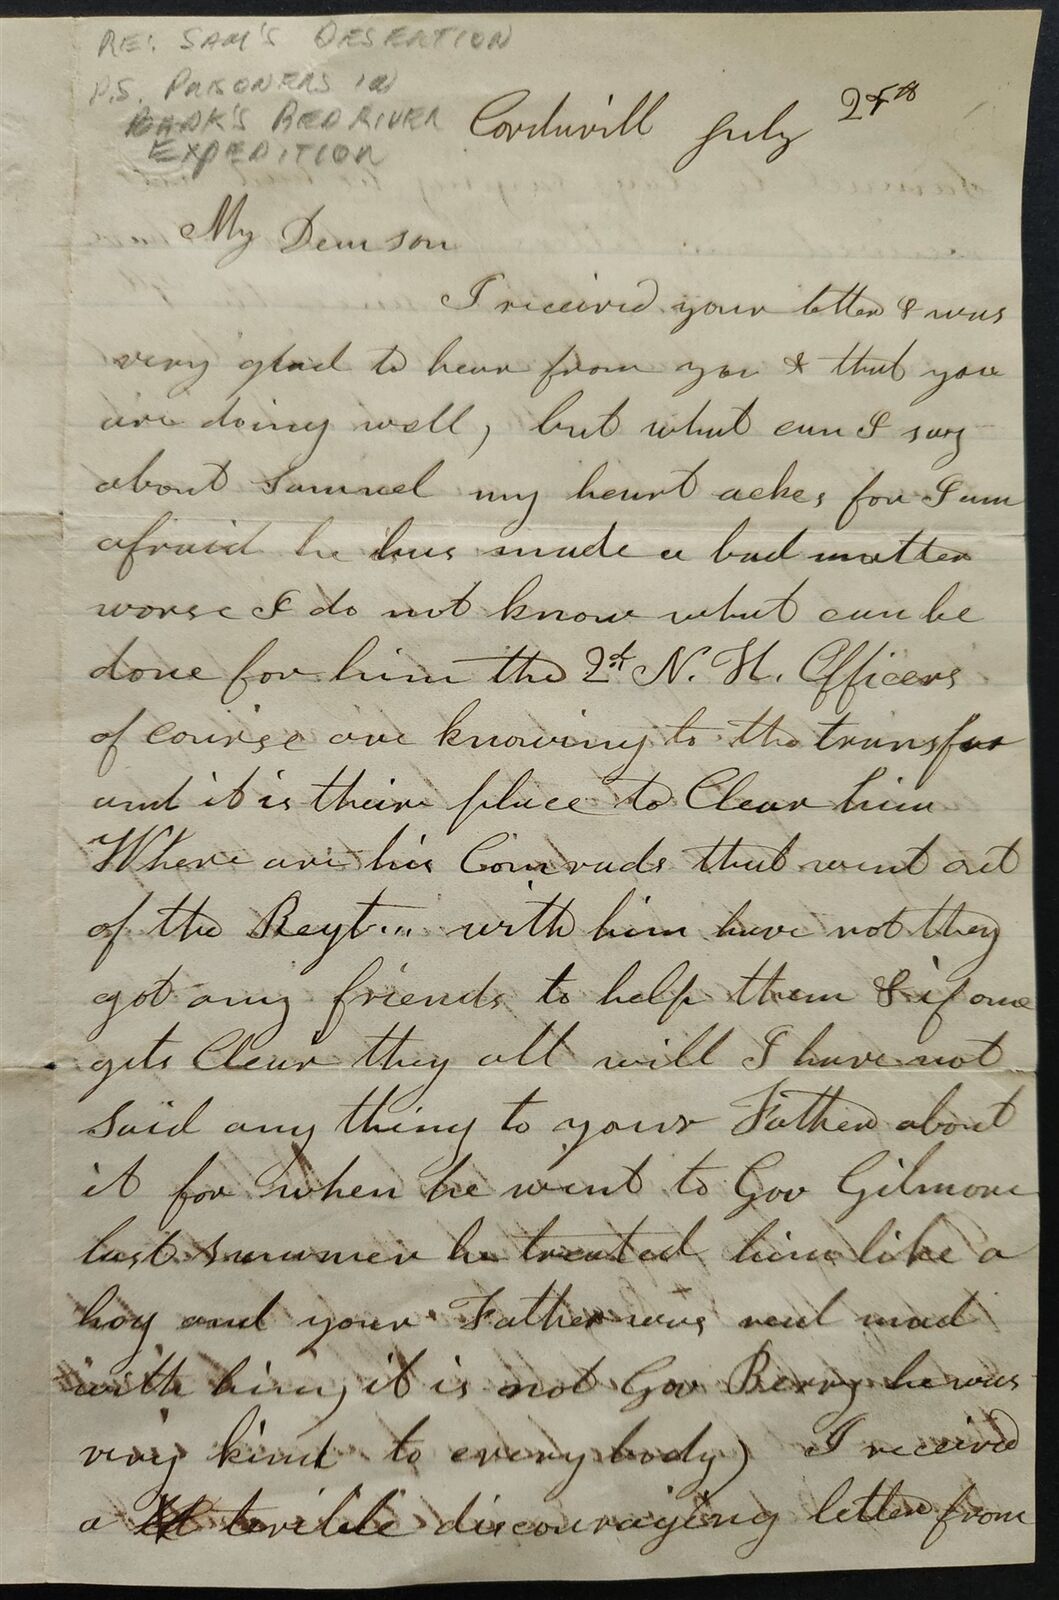 RE: SAM'S DESERTION
P.S. PRISONERS IN
BANK'S RED RIVER
EXPEDITION
Corduvill July 25th
My Dear son
I received your letter & was
very glad to hear from you & that you
are doing well, but what can I say
about Samuel my heart ackes for I am
afraid he has made a bad matter
worse I do not know what can be
done for him the 2d N. H. Officers
of course are knowing to the transfer
and it is theire place to Clear him
Where are his Comrads that went out
of the Regt... with him have not they
got any friends to help them & if one
gets Clear they all will I have not
said any thing to your Father about
it for when he went to Gov Gilmore
last summer he treated him like a
hog and your Father was real mad
with him, it is not Gov Berry he was
very kind to everybody) I received
a terible discouraging letter from